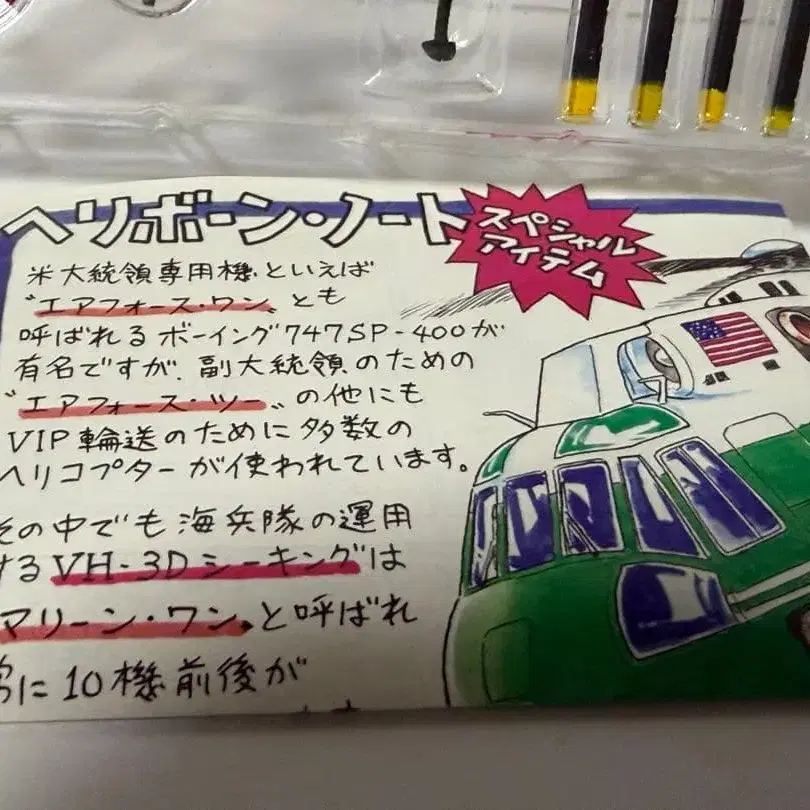 ヘリボーン・ノート
スペシャル
アイテム
米大統領専用機といえば
〝エアフォース・ワン〟とも
呼ばれるボーイング747SP-400が
有名ですが、副大統領のための
〝エアフォース・ツー〟の他にも
VIP輪送のために多数の
ヘリコプターが使われています。
その中でも海兵隊の運用
するVH-3Dシーキングは
マリーン・ワン〟と呼ばれ
に10機前後が